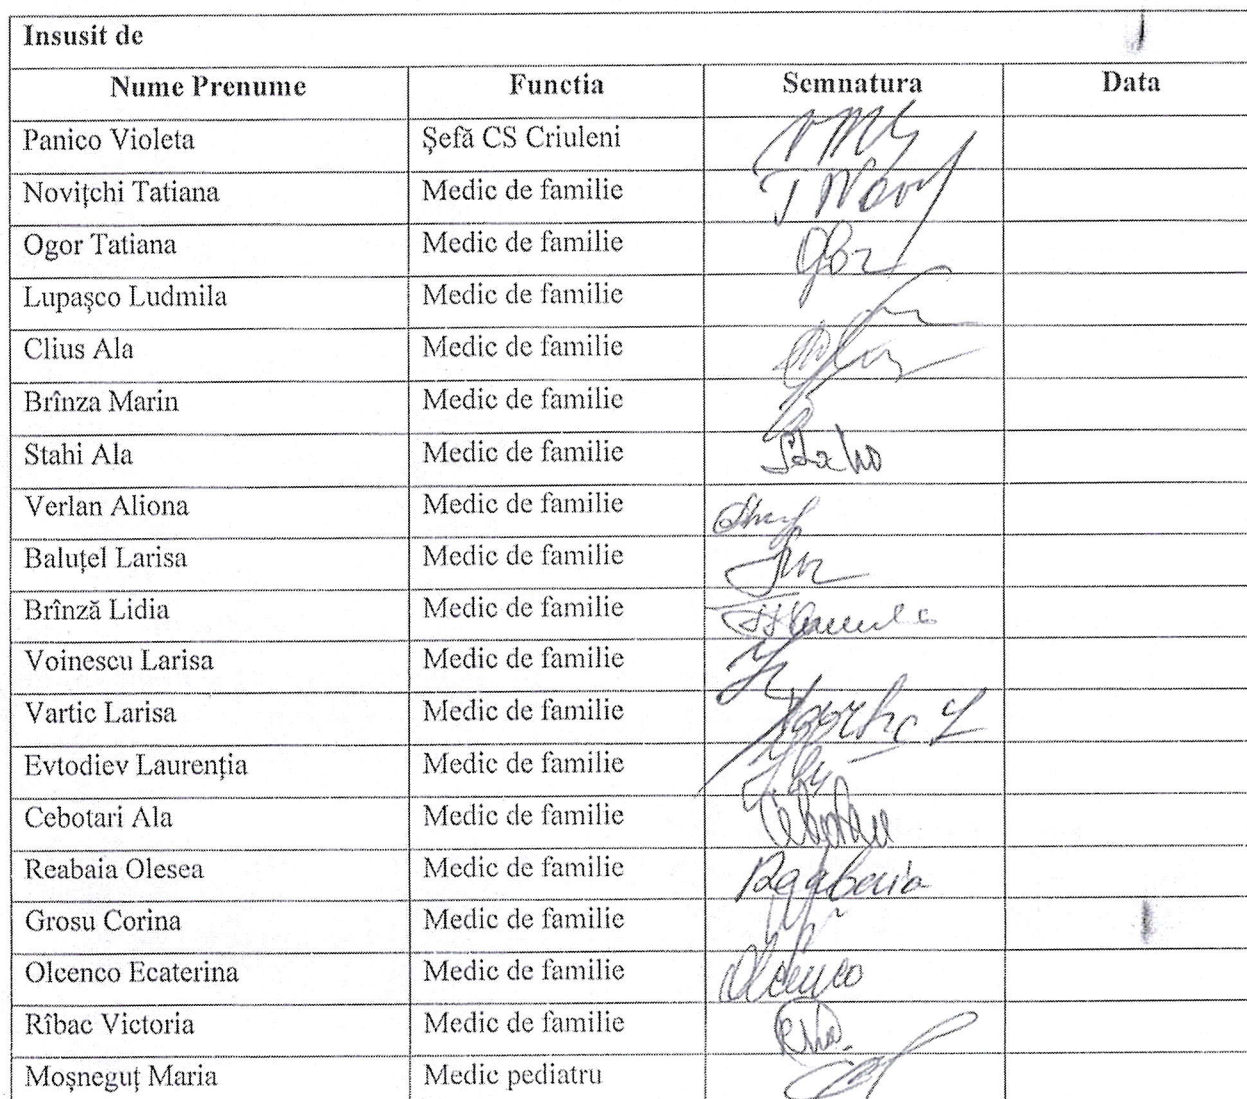 Insusit de
Nume Prenume Functia Semnatura Data
Panico Violeta Șefă CS Criuleni
Novițchi Tatiana Medic de familie
Ogor Tatiana Medic de familie
Lupașco Ludmila Medic de familie
Clius Ala Medic de familie
Brînza Marin Medic de familie
Stahi Ala Medic de familie
Verlan Aliona Medic de familie
Baluțel Larisa Medic de familie
Brînză Lidia Medic de familie
Voinescu Larisa Medic de familie
Vartic Larisa Medic de familie
Evtodiev Laurenția Medic de familie
Cebotari Ala Medic de familie
Reabaia Olesea Medic de familie
Grosu Corina Medic de familie
Olcenco Ecaterina Medic de familie Olcenco
Rîbac Victoria Medic de familie
Moșneguț Maria Medic pediatru